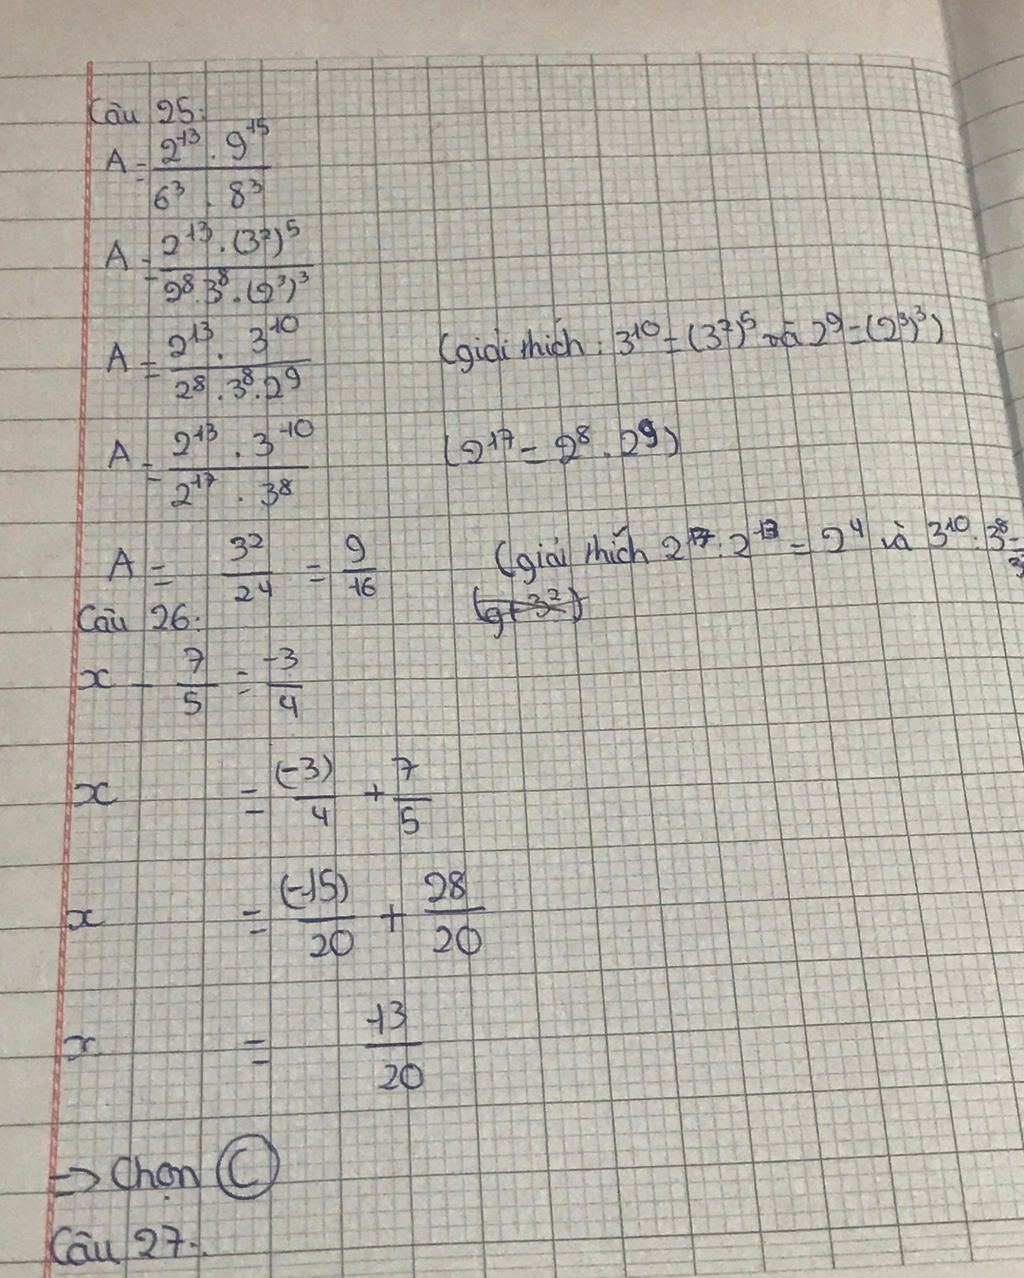 Câu 25:
A = \frac{2^{13} . 9^{15}}{6^3 . 8^3}
A = \frac{2^{13} . (3^2)^5}{2^8 . 3^8 . (2^3)^3}
A = \frac{2^{13} . 3^{10}}{2^8 . 3^8 . 2^9} (giải thích : 3^{10} = (3^2)^5 và 2^9 = (2^3)^3)
A = \frac{2^{13} . 3^{10}}{2^{17} . 3^8} (2^{17} = 2^8 . 2^9)
A = \frac{3^2}{2^4} = \frac{9}{16} (giải thích 2^{17} : 2^{13} = 2^4 và 3^{10} : 3^8 =
Câu 26:
x - \frac{7}{5} = \frac{-3}{4}
x = \frac{(-3)}{4} + \frac{7}{5}
x = \frac{(-15)}{20} + \frac{28}{20}
x = \frac{13}{20}
=> Chọn C
Câu 27: